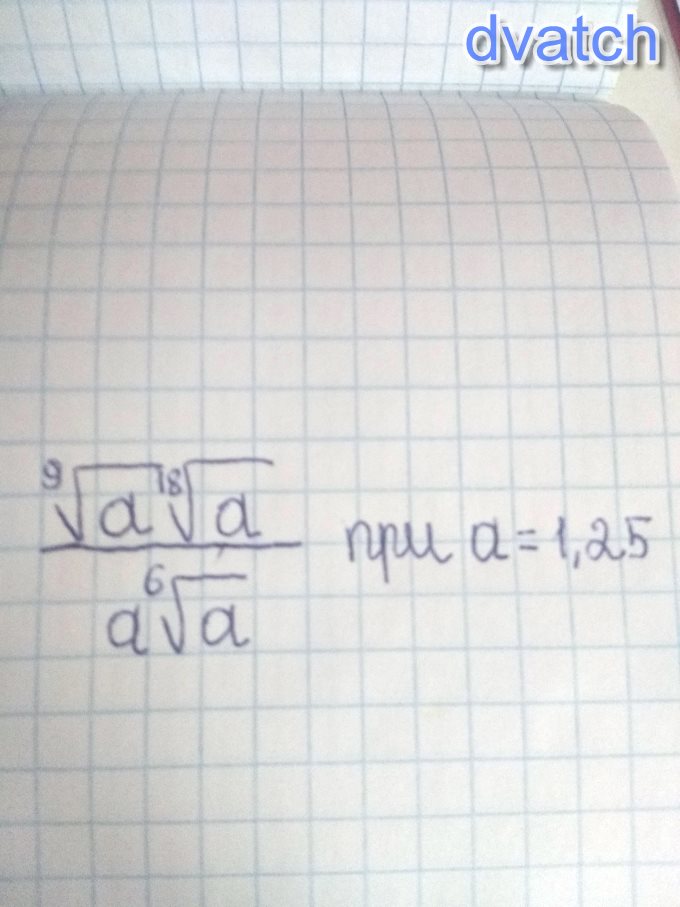 dvatch
⁹√a ¹⁸√a
a ⁶√a
при a = 1,25